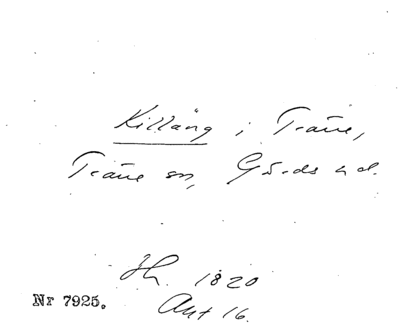 Killäng i Träne,
Träne sn, Gärds hd.
Jh. 1820
Akt 16.
Nr 7925.